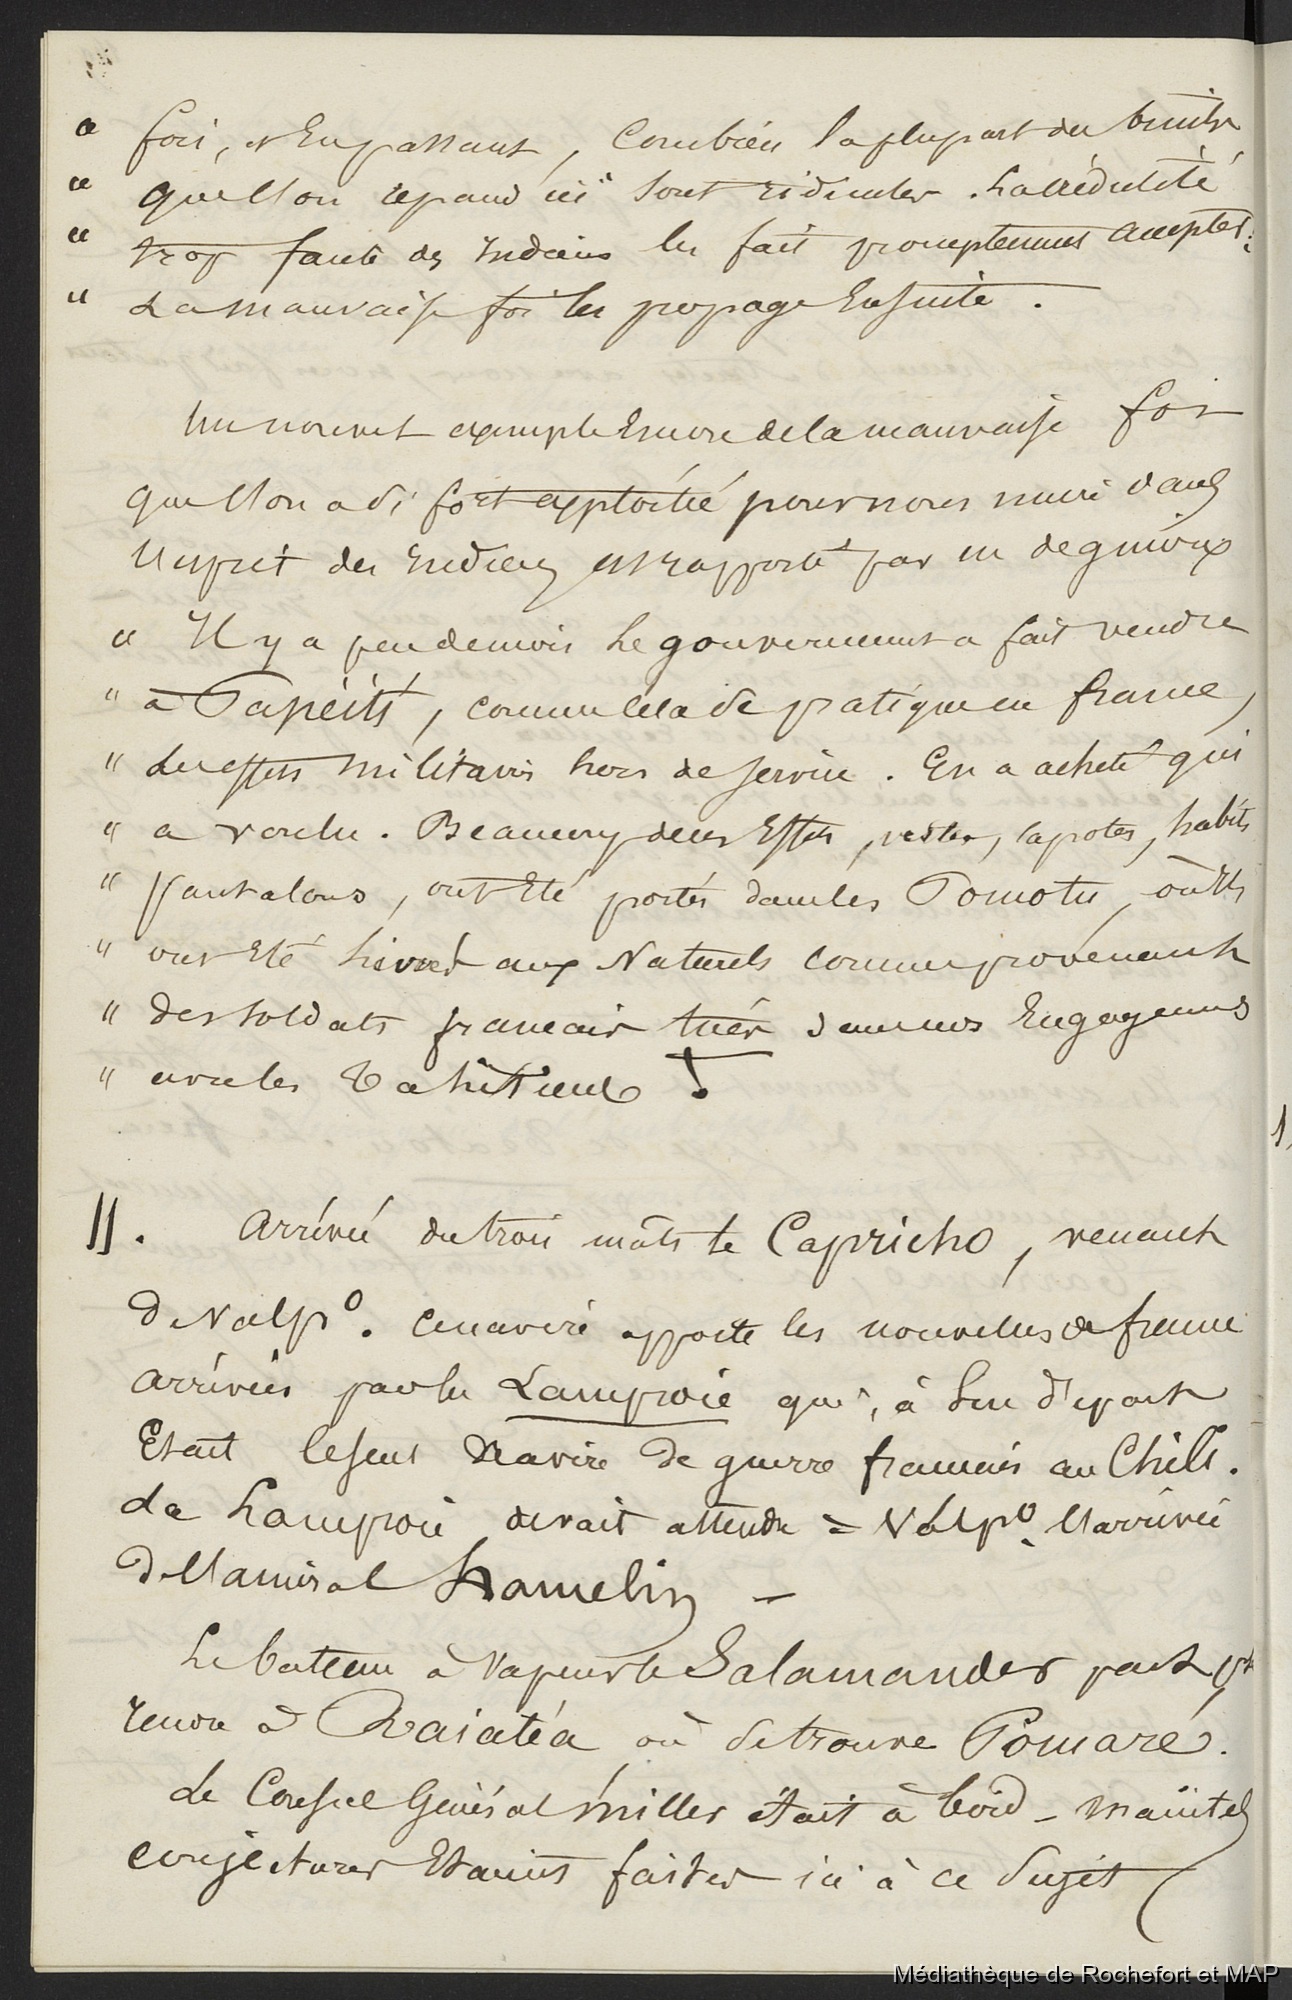 " fois, et en passant, combien la plupart des bruits
" que l'on répand ici sont ridicules. La crédulité
" trop facile des Indiens les fait promptement accepter.
" La mauvaise foi les propage ensuite.
Un nouvel exemple encore de la mauvaise foi
que l'on a si fort exploitée pour nous nuire dans
l'esprit des Indiens est rapporté par un de
" Il y a peu de mois le gouvernement a fait vendre
" à Papéïti, comme cela se pratique en france,
" des effets militaires hors de service. En a acheté qui
" a voulu. Beaucoup de ces effets, vestes, capotes, habits
" pantalons, ont été portés dans les Pomotu, où ils
" ont été livrés aux Naturels comme provenant
" des soldats français tués dans nos engagements
" avec les Tahitiens !
11. Arrivée du trois mâts le Capricho, venant
de Valpo. Ce navire apporte les nouvelles de france
arrivées par la Lamproie qui, à son départ
Etait le seul Navire de guerre français au Chili.
La Lamproie devait attendre à Valpo. l'arrivée
de l'amiral Hamelin —
Le bateau à vapeur le Salamander part pr
rendre à Raiatéa où se trouve Pomaré.
Le Consul Général Miller était à bord - Maintes
conjectures Etaient faites ici à ce sujet
Médiathèque de Rochefort et MAP